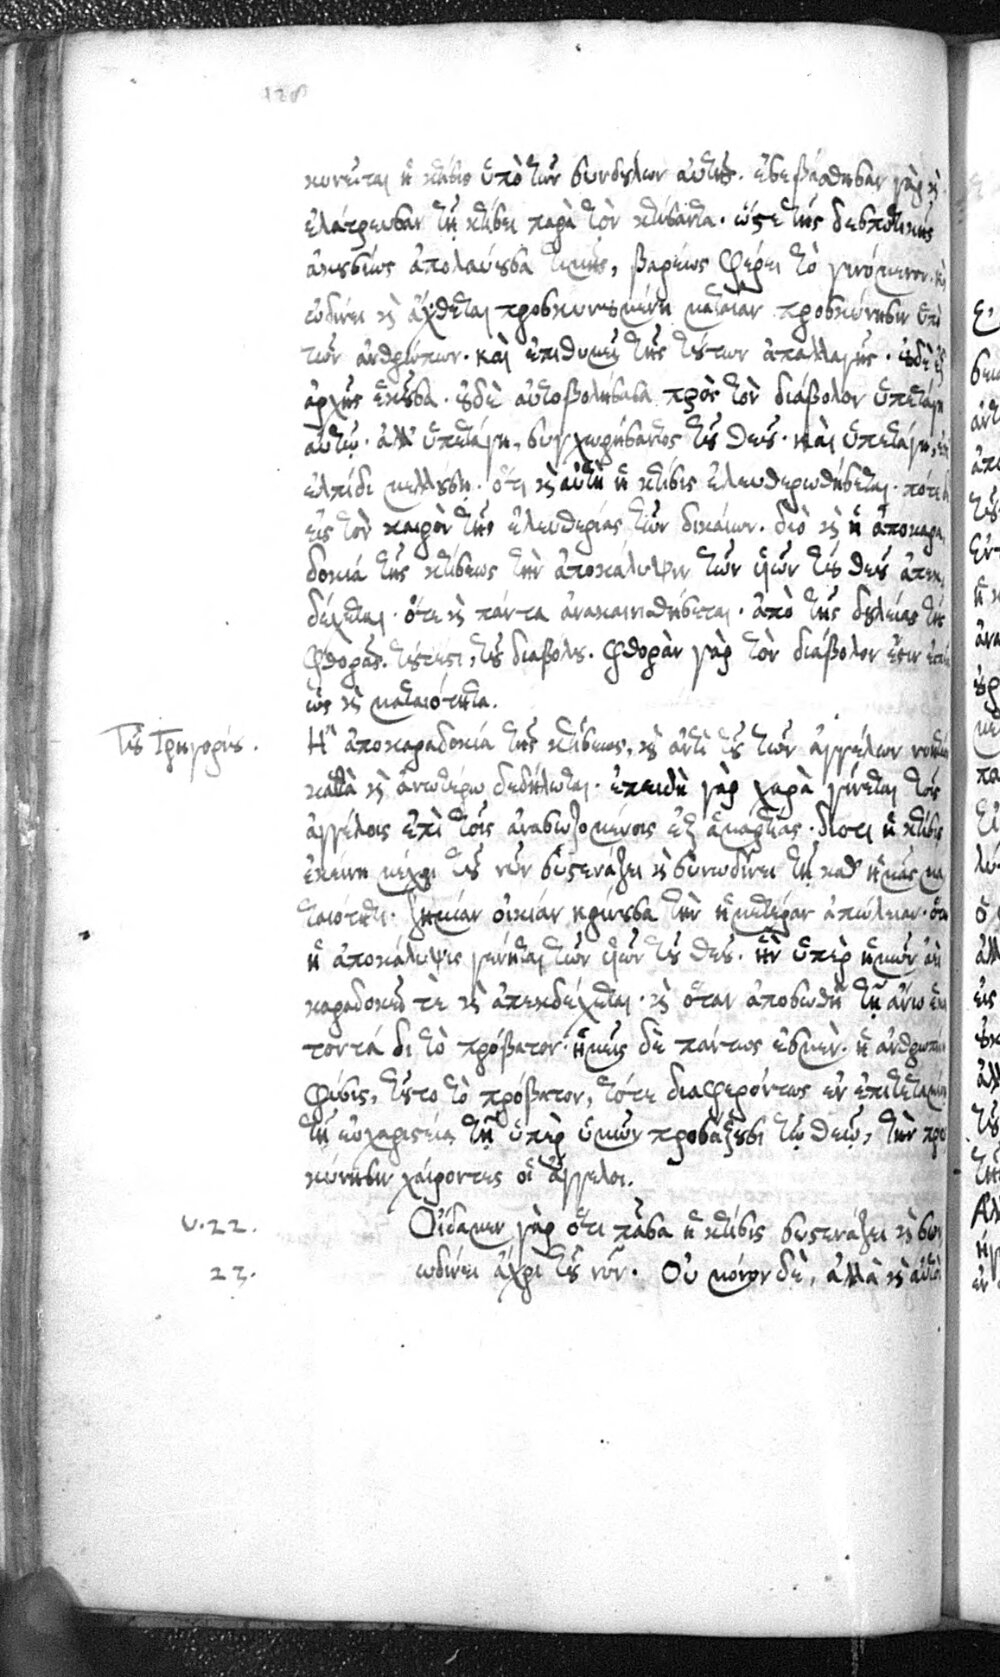 128
κυνεῖται ἡ κτίσις ὑπὸ τῶν συνδούλων αὐτῆς. ἐσεβάσθησαν γὰρ κὶ
ἐλάτρευσαν τῇ κτίσει παρὰ τὸν κτίσαντα. ὥστε τῆς δεσποτικῆς
ἀκουσίως ἀπολαύουσα τιμῆς, βαρέως φέρει τὸ γινόμενον. κὶ
ὠδίνει κὶ ἄχθεται προσκυνουμένη ματαίαν προσκύνησιν ὑπὸ
τῶν ἀνθρώπων. καὶ ἐπιθυμεῖ τῆς τούτων ἀπαλλαγῆς. οὐδὲ ἐξ
ἀρχῆς ἑκοῦσα. οὐδὲ αὐτοβολήσασα πρὸς τὸν διάβολον ὑπετάγη
αὐτῷ. ἀλλ' ὑπετάγη, συγχωρήσαντος τοῦ θεοῦ. καὶ ὑπετάγη, ἐπ'
ἐλπίδι μελλούσῃ. ὅτι κὶ αὐτὴ ἡ κτίσις ἐλευθερωθήσεται. πότε;
εἰς τὸν καιρὸν τῆς ἐλευθερίας τῶν δικαίων. διὸ κὶ ἡ ἀποκαρα
δοκία τῆς κτίσεως τὴν ἀποκάλυψιν τῶν υἱῶν τοῦ θεοῦ ἀπεκ
δέχεται. ὅτε κὶ πάντα ἀνακαινισθήσεται. ἀπὸ τῆς δουλείας τῆς
φθορᾶς. τουτέστι, τοῦ διαβόλου. φθορὰν γὰρ τὸν διάβολον
ὡς κὶ ματαιότητα.
Τοῦ Γρηγορίου. Ἡ ἀποκαραδοκία τῆς κτίσεως, κὶ ἀντὶ τοῦ τῶν ἀγγέλων
καθὰ κὶ ἀνωτέρω δεδήλωται. ἐπειδὴ γὰρ χαρὰ γίνεται τοῖς
ἀγγέλοις ἐπὶ τοῖς ἀνασωζομένοις ἐξ ἁμαρτίας. διότι ἡ κτίσις
ἐκείνη μέχρι τοῦ νῦν συστενάζει κὶ συνωδίνει τῇ καθ' ἡμᾶς μα
ταιότητι. ζημίαν οἰκίαν κρίνουσα τὴν ἡμετέραν ἀπώλειαν. ὅτε
ἡ ἀποκάλυψις γένηται τῶν υἱῶν τοῦ θεοῦ. ἣν ὑπὲρ ἡμῶν ἀεὶ
καραδοκεῖ τὲ κὶ ἀπεκδέχεται. κὶ ὅταν ἀποσωθῇ τῇ ἄνω ἑκα
τοντάδι τὸ πρόβατον. ἡμεῖς δὲ πάντως ἐσμὲν. ἡ ἀνθρωπίνη
φύσις, τοῦτο τὸ πρόβατον, τότε διαφερόντως ἐν ἐπιτεταμένῃ
τῇ εὐχαριστείᾳ τῇ ὑπὲρ ὑμῶν προσάξουσι τῷ θεῷ, τὴν προσ
κύνησιν χαίροντες οἱ ἄγγελοι.
υ. 22. Οἴδαμεν γὰρ ὅτι πᾶσα ἡ κτίσις συστενάζει κὶ συν
23. ωδίνει ἄχρι τοῦ νῦν. Οὐ μόνον δὲ, ἀλλὰ κὶ αὐτοὶ